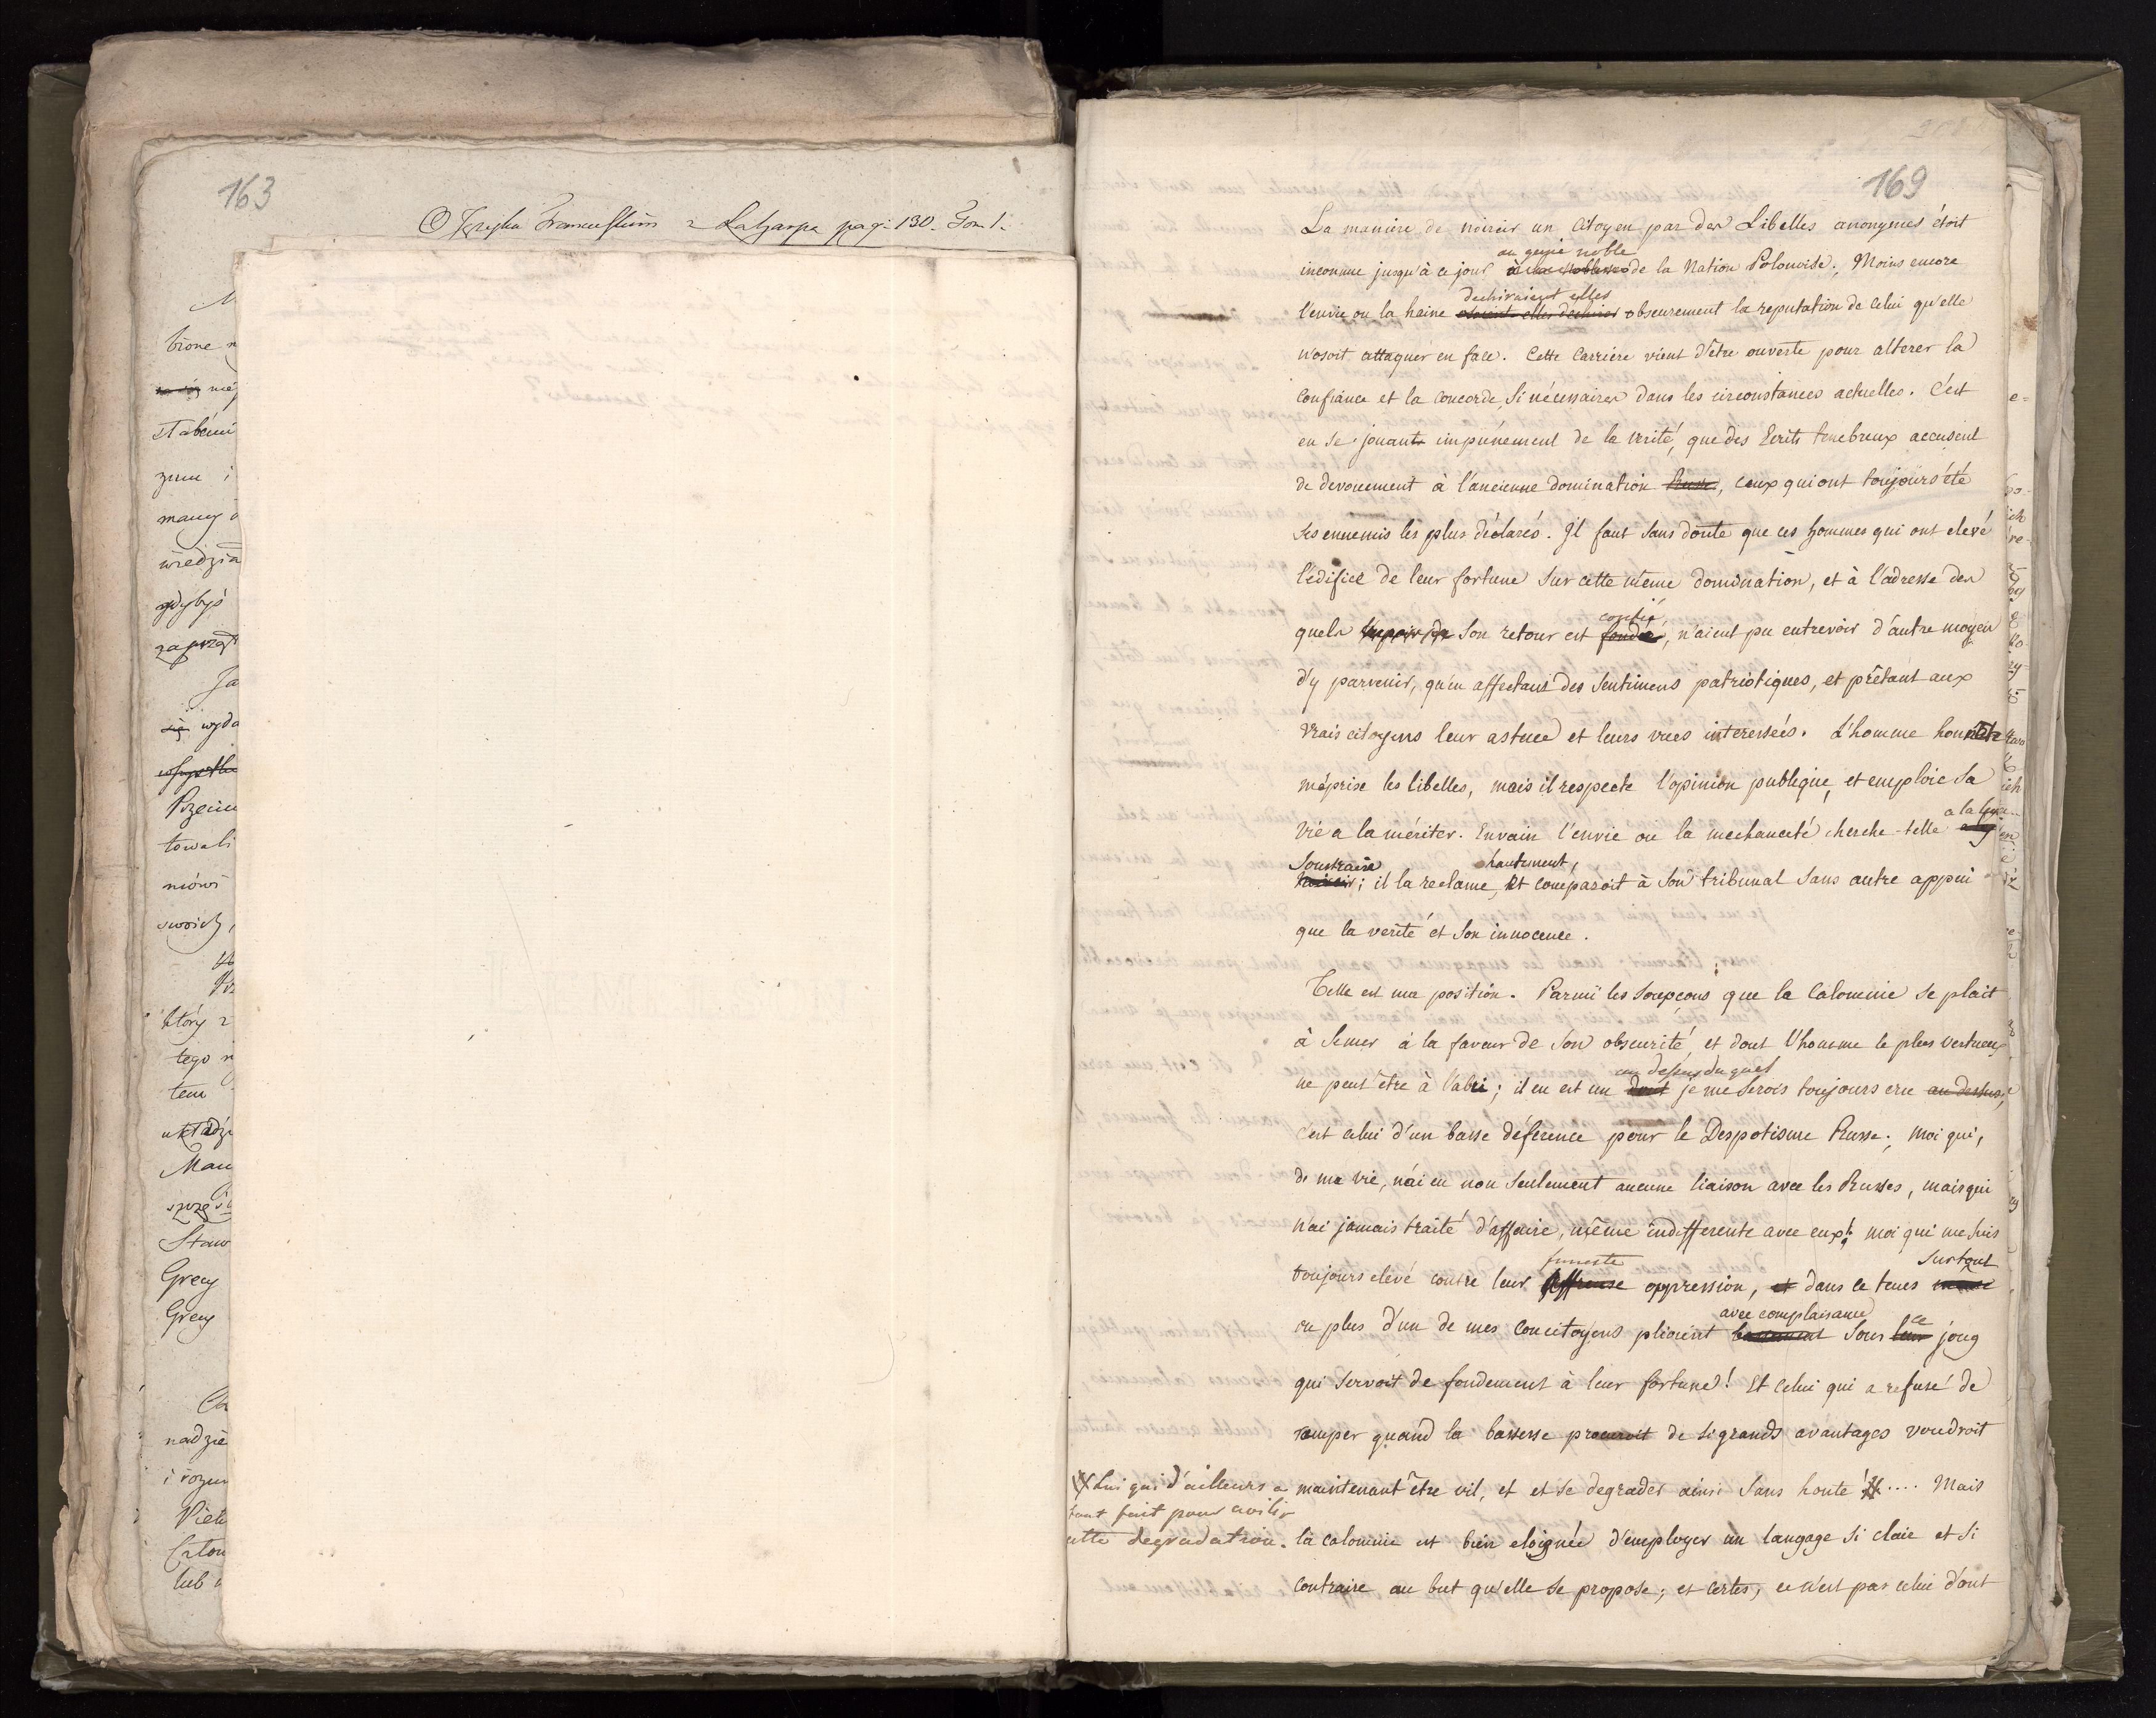 163
pag. 130. Tom 1.
bione
stabemi
manej
gdybyś
Ja
się wyda
Przeciw
towali
mówi
swoich,
który z
tego
tem
Mau
Staw
Grecy
Grecy
nadzie
i rozum
lub
169
La manière de noircir un Citoyen par des Libelles anonymes étoit
au genie noble
inconnue jusqu'à ce jour à la noblesse de la Nation Polonoise. Moins encore
dechiroient elles
l'envie ou la haine osoient elles dechirer obscurement la reputation de celui qu'elle
n'osoit attaquer en face. Cette Carriere vient d'être ouverte pour alterer la
Confiance et la Concorde, si nécessaires dans les circonstances actuelles. C'est
en se jouant impunement de la verité, que des Ecrits tenebreux accusent
de devouement à l'ancienne domination Russe, ceux qui ont toujours été
ses ennemis les plus déclarés. Il faut sans doute que ces hommes qui ont elevé
l'edifice de leur fortune sur cette même domination, et à l'adresse des
confié
quels l'espoir de son retour est fondé, n'aient pu entrevoir d'autre moyen
d'y parvenir, qu'en affectant des sentimens patriotiques, et prêtant aux
vrais citoyens leur astuce et leurs vues interessées. L'homme honnête
méprise les libelles, mais il respecte l'opinion publique, et emploie sa
a la lui
vie a la mériter. Envain l'envie ou la mechanceté cherche-telle
Soustraire hautement,
noircir; il la reclame, et comparoit à son tribunal sans autre appui
que la verité et son innocence.
Telle est ma position. Parmi les soupçons que la Calomnie se plait
à semer à la faveur de son obscurité et dont l'homme le plus vertueux
au dessus duquel
ne peut être à l'abri; il en est un dont je me serois toujours cru au dessus,
c'est celui d'un basse déference pour le Despotisme Russe. Moi qui,
de ma vie, n'ai eu non seulement aucune liaison avec les Russes, mais qui
n'ai jamais traité d'affaire, même indifferente avec eux! moi qui me suis
funeste surtout
toujours elevé contre leur affreuse oppression, et dans le tems même
avec complaisance ce
ou plus d'un de mes concitoyens plioient bassement sous leur joug
qui servoit de fondement à leur fortune! Et celui qui a refusé de
ramper quand la bassesse procuroit de si grands avantages voudroit
maintenant être vil, et et se degrader ainsi sans honte! # .... Mais
# Lui qui d'ailleurs a
tout fait pour avilir
cette degradation.
la calomnie est bien eloignée d'employer un langage si clair et si
contraire au but qu'elle se propose; et certes, ce n'est pas celui dont